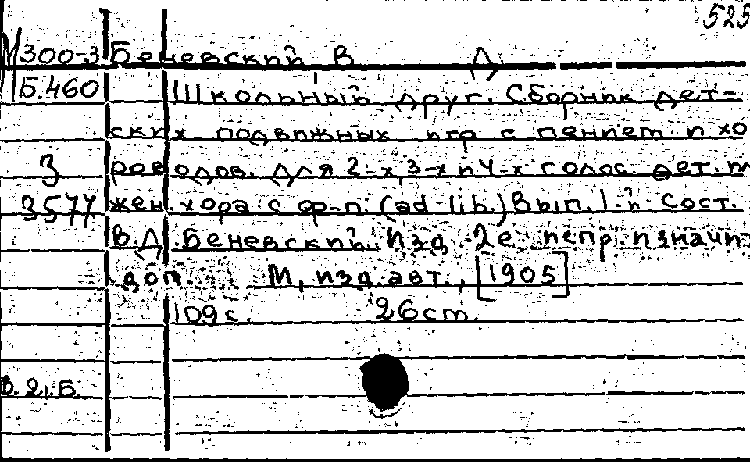 525
М300-3 Беневский, В. Д.
Б.460 Школьный друг. Сборник дет-
ских подвижных игр с пением и хо
роводов. Для 2-х, 3-х и 4-х голос. дет. и
З
3577 жен. хора с ф-п. (ad lib.) Вып. 1-й. Сост.
В.Д. Беневский. Изд. 2е испр. и значит.
доп. М, изд. авт., [1905]
109 с. 26 cm.
В. 21. Б.